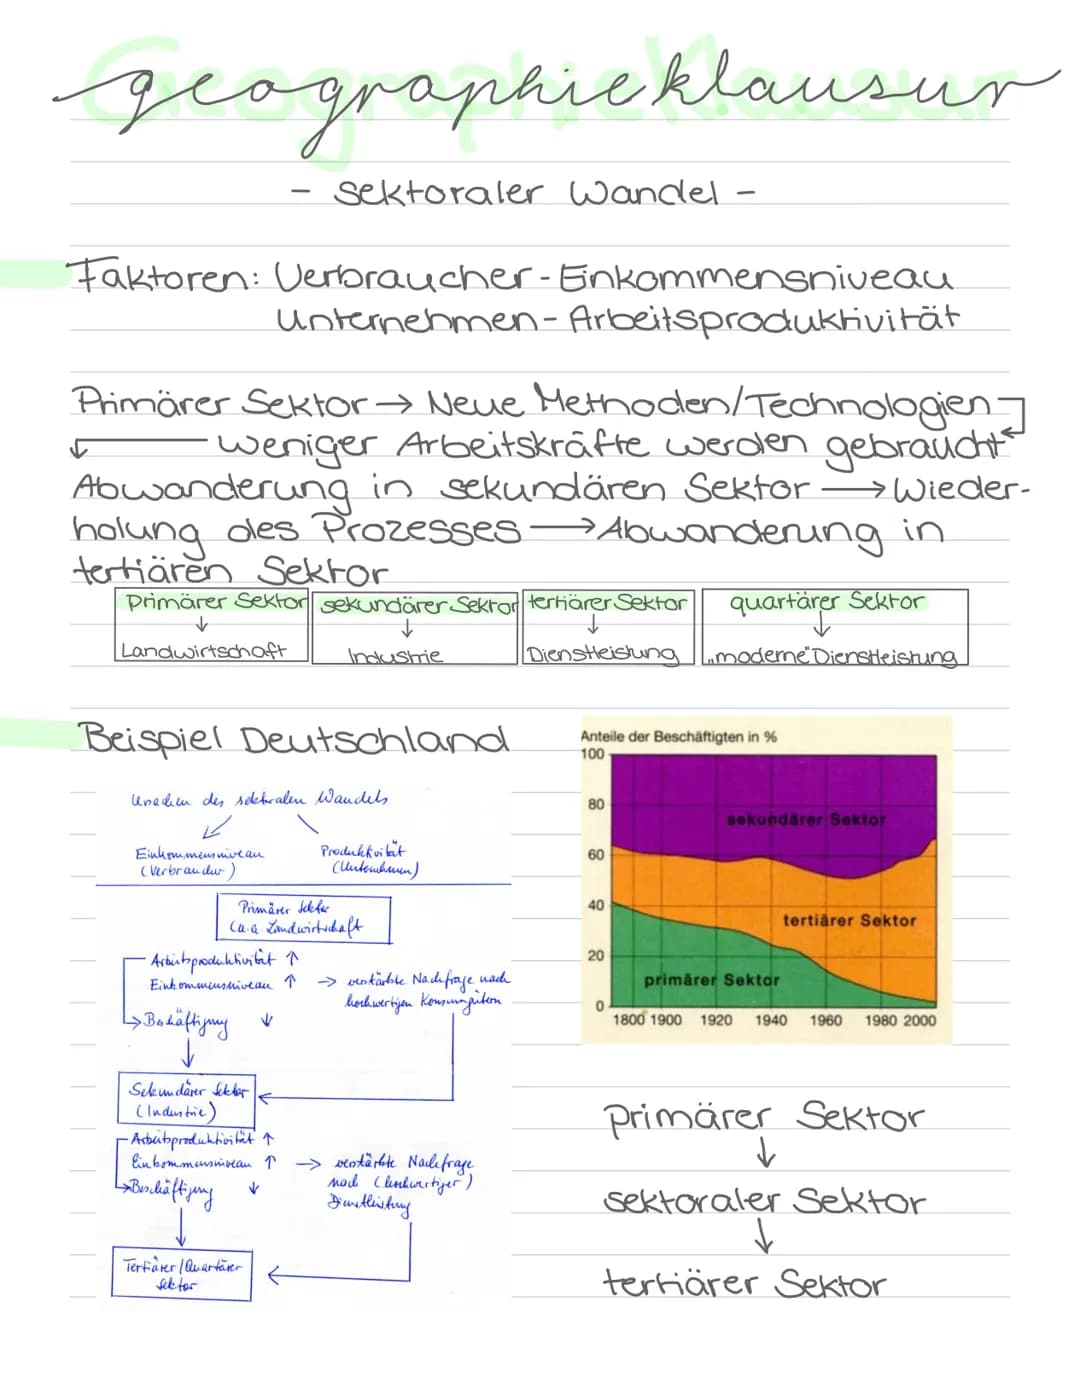 geographieklausur
- sektoraler Wandel -
Faktoren: Verbraucher - Einkommensniveau
Unternehmen - Arbeitsproduktivität
Primärer Sektor → Neue Methoden/Technologien
weniger Arbeitskräfte werden gebraucht
Abwanderung in sekundären Sektor → Wieder-
holung des Prozesses → Abwanderung in
tertiären Sektor
primärer Sektor
↓
Landwirtschaft
sekundärer Sektor
↓
Industrie
tertiärer Sektor
↓
Dienstleistung
quartärer Sektor
↓
„moderne" Dienstleistung
Beispiel Deutschland
Ursachen des sektoralen Wandels
Einkommensniveau
(Verbraucher)
Produktivität
(Unternehmen)
Primärer Sektor
(u.a. Landwirtschaft
Arbeitsproduktivität ↑
Einkommensniveau ↑ → verstärkte Nachfrage nach
hochwertigen Konsumgütern
→ Beschäftigung ↓
Sekundärer Sektor
(Industrie)
Arbeitsproduktivität ↑
Einkommensniveau ↑ → verstärkte Nachfrage
nach (hochwertiger)
Dienstleistung
→ Beschäftigung ↓
Tertiärer/Quartärer
Sektor
Anteile der Beschäftigten in %
100
80
60
40
20
0
sekundärer Sektor
tertiärer Sektor
primärer Sektor
1800 1900 1920 1940 1960 1980 2000
primärer Sektor
↓
sektoraler Sektor
↓
tertiärer Sektor